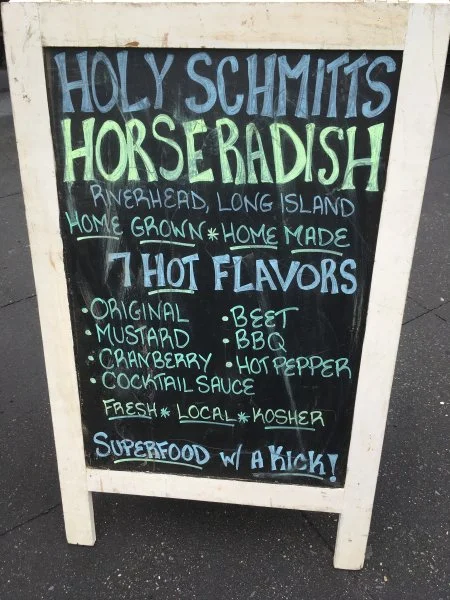 HOLY SCHMITTS
HORSERADISH
RIVERHEAD, LONG ISLAND
HOME GROWN * HOME MADE
7 HOT FLAVORS
• ORIGINAL • BEET
• MUSTARD • BBQ
• CRANBERRY • HOT PEPPER
• COCKTAIL SAUCE
FRESH * LOCAL * KOSHER
SUPERFOOD W/ A KICK!